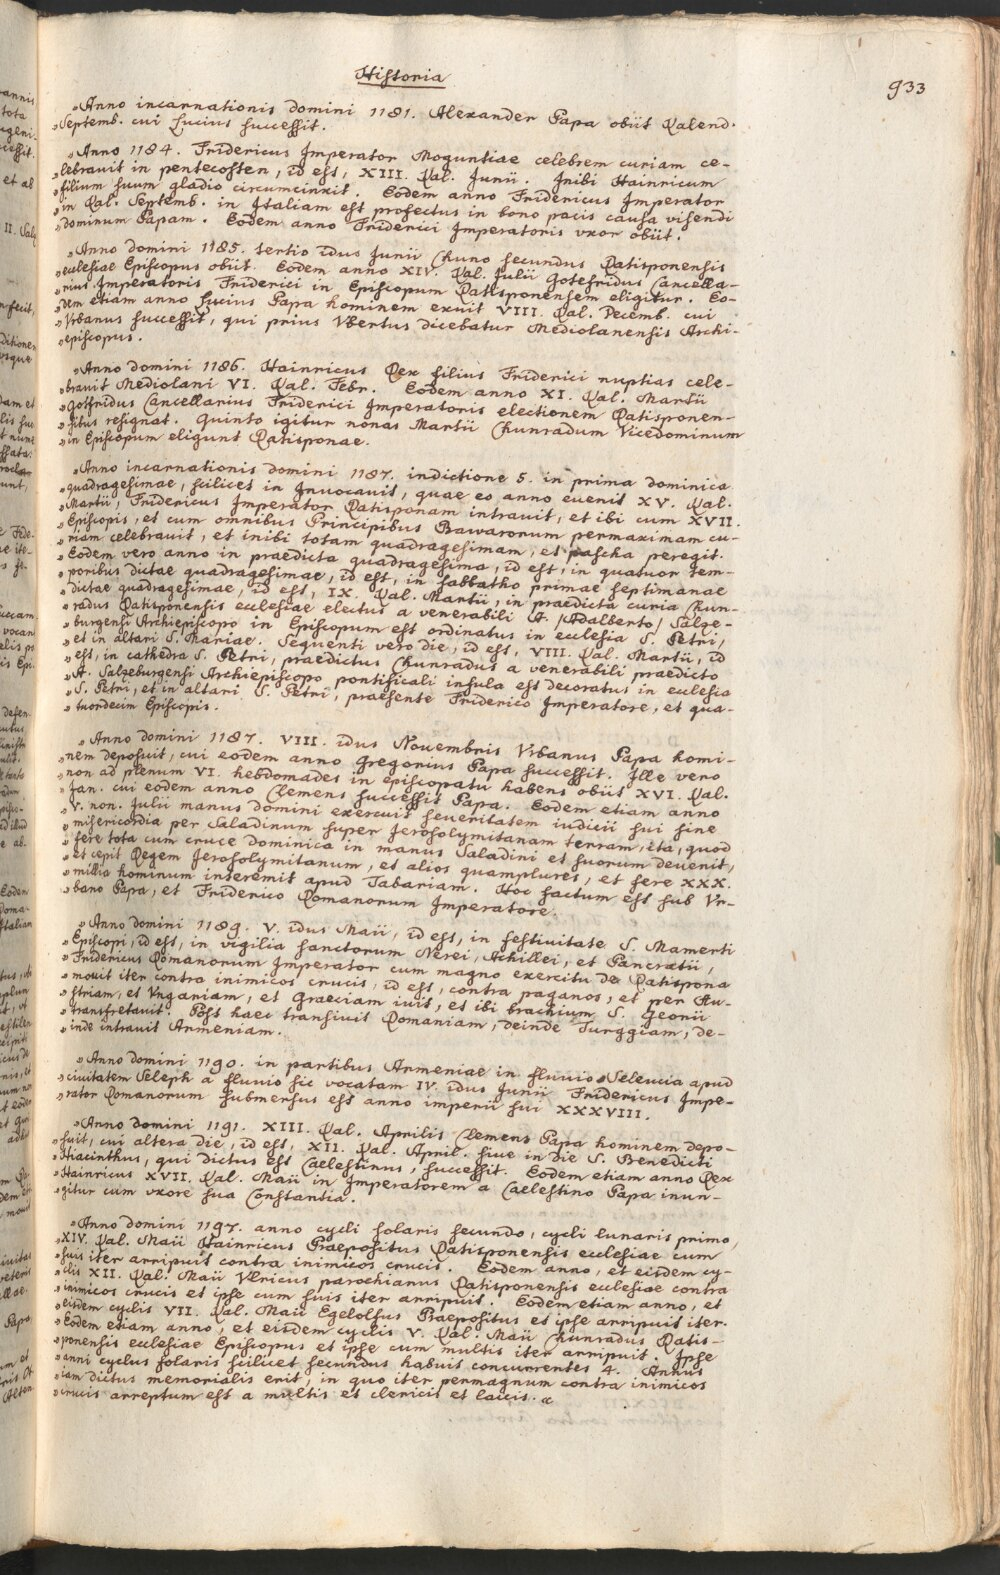 Historia
933
"Anno incarnationis domini 1181. Alexander Papa obiit Kalend.
"Septemb. cui Lucius successit.
"Anno 1184. Fridericus Imperator Moguntiae celebrem curiam ce-
"lebrauit in pentecosten, id est, XIII. Kal. Junii. Inibi Hainricum
"filium suum gladio circumcinxit. Eodem anno Fridericus Imperator
"in Kal. Septemb. in Italiam est profectus in bono pacis causa visendi
"dominum Papam. Eodem anno Friderici Imperatoris vxor obiit.
"Anno domini 1185. tertio idus Junii Chuno secundus Ratisponensis
"ecclesiae Episcopus obiit. Eodem anno XIV. Kal. Julii Gotefridus Cancella-
"rius Imperatoris Friderici in Episcopum Ratisponensem eligitur. Eo-
"dem etiam anno Lucius Papa hominem exuit VIII. Kal. Decemb. cui
"Vrbanus successit, qui prius Vbertus dicebatur Mediolanensis Archi-
"episcopus.
"Anno domini 1186. Hainricus Rex filius Friderici nuptias cele-
"brauit Mediolani VI. Kal. Febr. Eodem anno XI. Kal. Martii
"Gotfridus Cancellarius Friderici Imperatoris electionem Ratisponen-
"sibus resignat. Quinto igitur nonas Martii Chunradum Vicedominum
"in Episcopum eligunt Ratisponae.
"Anno incarnationis domini 1187. indictione 5. in prima dominica
"quadragesimae, scilicet in Inuocauit, quae eo anno euenit XV. Kal.
"Martii, Fridericus Imperator Ratisponam intrauit, et ibi cum XVII.
"Episcopis, et cum omnibus Principibus Bawarorum permaximam cu-
"riam celebrauit, et inibi totam quadragesimam, et pascha peregit.
"Eodem vero anno in praedicta quadragesima, id est, in quatuor tem-
"poribus dictae quadragesimae, id est, in sabbatho primae septimanae
"dictae quadragesimae, id est, IX. Kal. Martii, in praedicta curia Chun-
"radus Ratisponensis ecclesiae electus a venerabili A. /Adalberto/ Salze-
"burgensi Archiepiscopo in Episcopum est ordinatus in ecclesia S. Petri,
"et in altari S. Mariae. Sequenti vero die, id est, VIII. Kal. Martii, id
"est, in cathedra S. Petri, praedictus Chunradus a venerabili praedicto
"A. Salzeburgensi Archiepiscopo pontificali insula est decoratus in ecclesia
"S. Petri, et in altari S. Petri, praesente Friderico Imperatore, et qua-
"tuordecim Episcopis.
"Anno domini 1187. VIII. idus Nouembris Vrbanus Papa homi-
"nem deposuit, cui eodem anno Gregorius Papa successit. Ille vero
"non ad plenum VI. hebdomades in episcopatu habens obiit XVI. Kal.
"Jan. cui eodem anno Clemens successit Papa. Eodem etiam anno
"V. non. Julii manus domini exercuit seueritatem iudicii sui sine
"misericordia per Saladinum super Jerosolymitanam terram, ita, quod
"fere tota cum cruce Dominica in manus Saladini et suorum deuenit,
"et cepit Regem Jerosolymitanum, et alios quamplures, et fere XXX.
"millia hominum interemit apud Tabariam. Hoc factum est sub Vr-
"bano Papa, et Friderico Romanorum Imperatore.
"Anno domini 1189. V. idus Maii, id est, in festiuitate S. Mamerti
"Episcopi, id est, in vigilia sanctorum Nerei, Achillei, et Pancratii,
"Fridericus Romanorum Imperator cum magno exercitu de Ratispona
"mouit iter contra inimicos crucis, id est, contra paganos, et per Au-
"striam, et Vngariam, et Graeciam iuit, et ibi brachium S. Georii
"transfretauit. Post haec transiuit Romaniam, deinde Turggiam, de-
"inde intrauit Armeniam.
"Anno domini 1190. in partibus Armeniae in fluuio Seleucia apud
"ciuitatem Seleph a fluuio sic vocatam IV. idus Junii Fridericus Impe-
"rator Romanorum submersus est anno imperii sui XXXVIII.
"Anno domini 1191. XIII. Kal. Aprilis Clemens Papa hominem depo-
"suit, cui altera die, id est, XII. Kal. April. siue in die S. Benedicti
"Hiacinthus, qui dictus est Caelestinus, successit. Eodem etiam anno Rex
"Hainricus XVII. Kal. Maii in Imperatorem a Caelestino Papa inun-
"gitur cum vxore sua Constantia.
"Anno domini 1197. anno cycli solaris secundo, cycli lunaris primo,
"XIV. Kal. Maii Hainricus Praepositus Ratisponensis ecclesiae cum
"suis iter arripuit contra inimicos crucis. Eodem anno, et eisdem cy-
"clis XII. Kal. Maii Vlricus parochianus Ratisponensis ecclesiae contra
"inimicos crucis et ipse cum suis iter arripuit. Eodem etiam anno, et
"eisdem cyclis VII. Kal. Maii Egelolfus Praepositus et ipse arripuit iter.
"Eodem etiam anno, et eisdem cyclis V. Kal. Maii Chunradus Ratis-
"ponensis ecclesiae Episcopus et ipse cum multis iter arripuit. Ipse
"anni cyclus solaris scilicet secundus habuit concurrentes 4. Annus
"iam dictus memorialis erit, in quo iter permagnum contra inimicos
"crucis arreptum est a multis et clericis et laicis.